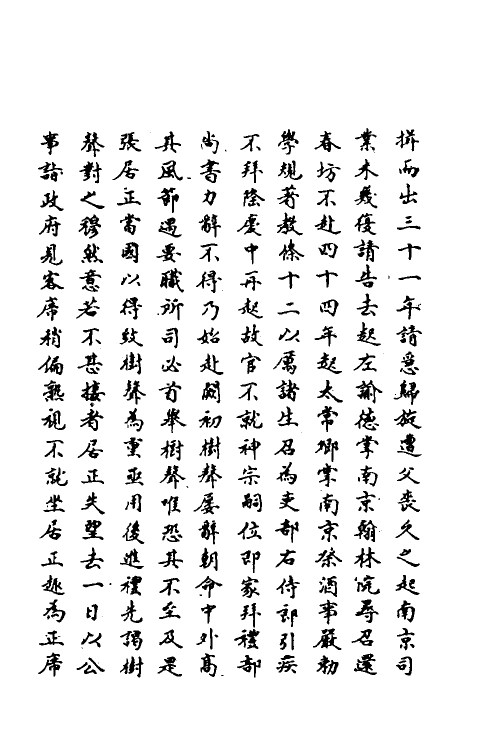 揖而出三十一年請急歸旋遭父喪久之起南京司
業未幾復請告去起左諭德掌南京翰林院尋召還
春坊不赴四十四年起太常卿掌南京祭酒事嚴勅
學規著教條十二以厲諸生召為吏部右侍郎引疾
不拜隆慶中再起故官不就神宗嗣位即家拜禮部
尚書力辭不得乃始赴闕初樹聲屢辭朝命中外高
其風節遇要職所司必首舉樹聲唯恐其不至及是
張居正當國以得致樹聲為重亟用後進禮先謁樹
聲對之穆然意若不甚接者居正失望去一日以公
事詣政府見客席稍偏熟視不就坐居正趣為正席